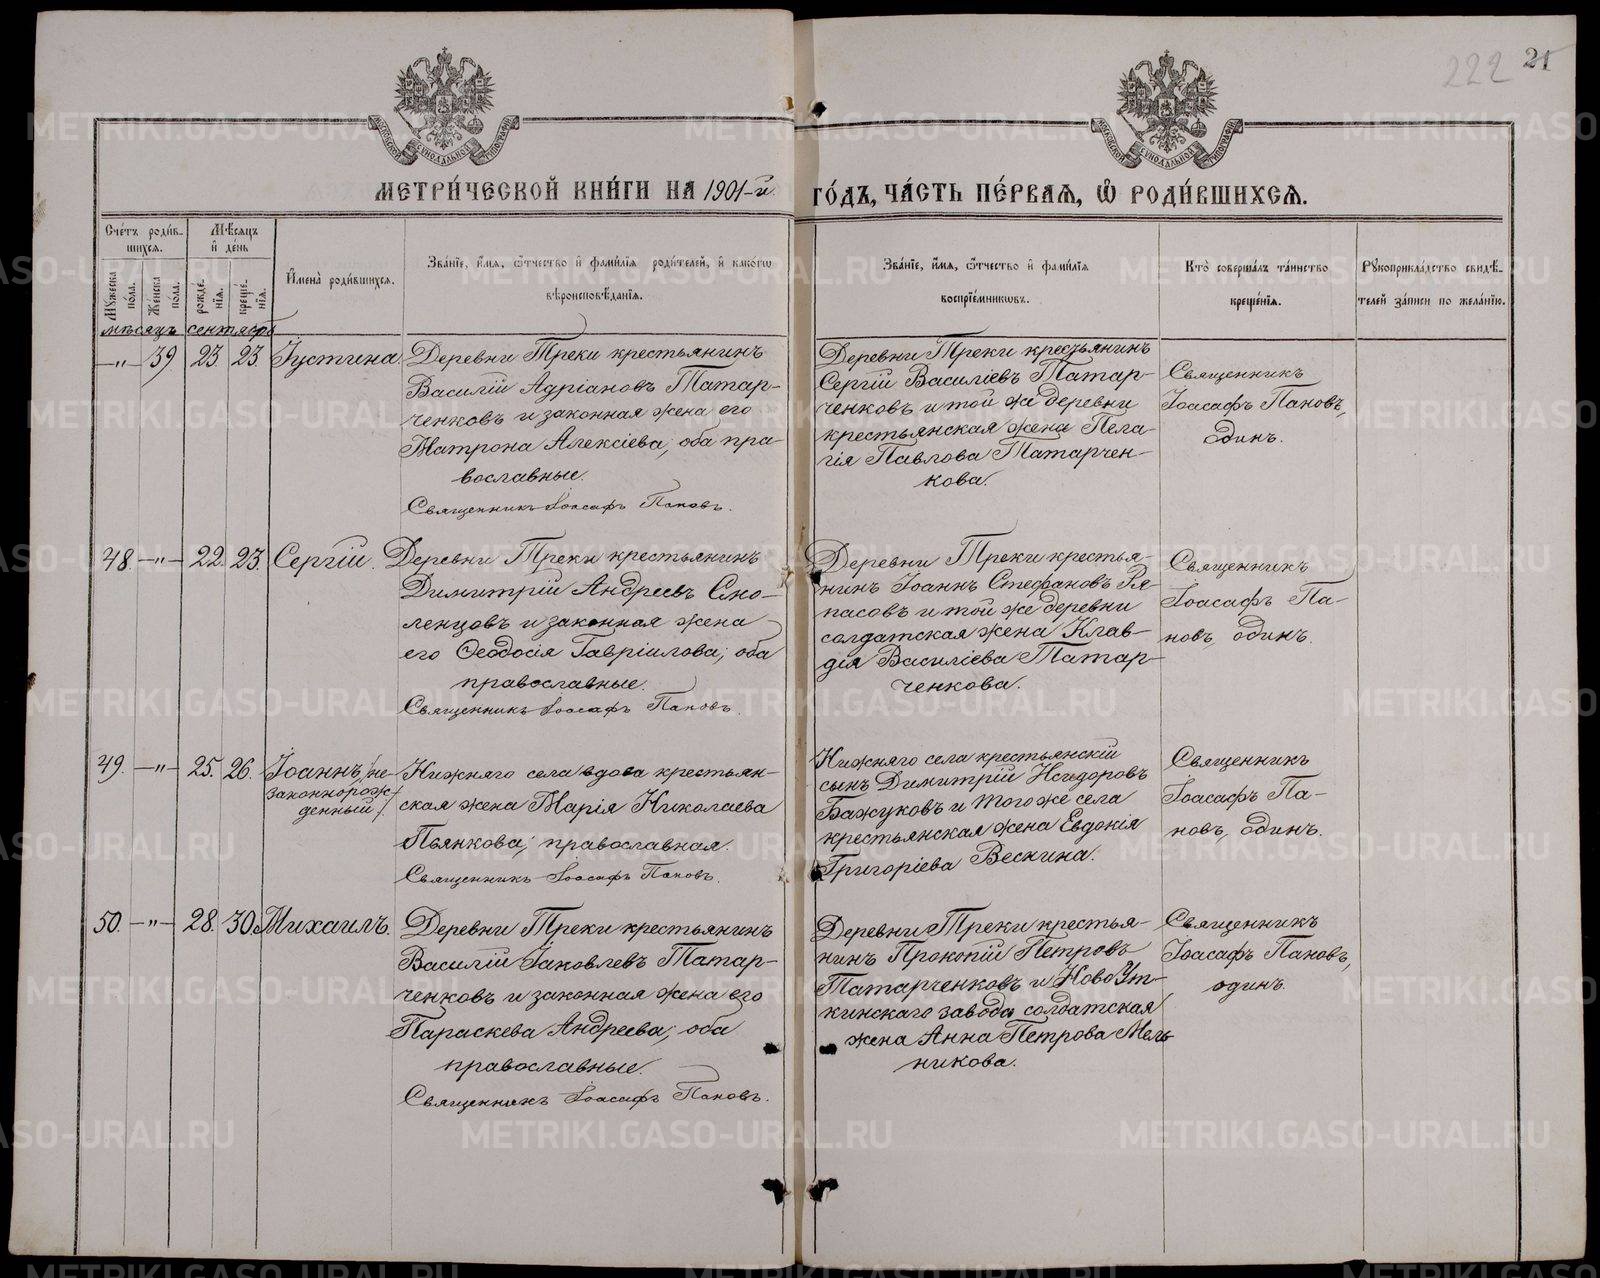 222 21
МЕТРИ́ЧЕСКОЙ КНИ́ГИ НА 1901-й ГО́ДЪ, ЧА́СТЬ ПЕ́РВАѦ, Ѡ҆ РОДИ́ВШИХСѦ.
Сче́тъ роди́в-
шихсѧ.
Мꙋ́жеска
по́ла.
Же́нска
по́ла.
Мѣ́сѧцъ
и҆ де́нь
рожде́-
нїѧ.
креще́-
нїѧ.
И҆мена̀ роди́вшихсѧ.
Зва́нїе, и҆́мѧ, ѻ҆́тчество и҆ фами́лїѧ роди́телей, и҆ како́гѡ
вѣроисповѣ́данїѧ.
Зва́нїе, и҆́мѧ, ѻ҆́тчество и҆ фами́лїѧ
воспрїе́мникѡвъ.
Кто̀ соверша́лъ та́инство
креще́нїѧ.
Рꙋкоприкла́дство свидѣ́-
телей за́писи по жела́нїю.
мѣсяцъ сентябрь
—„— 39 23. 23. Іустина
Деревни Треки крестьянинъ
Василій Адріановъ Татар-
ченковъ и законная жена его
Матрона Алексіева, оба пра-
вославные.
Священникъ Іоасафъ Пановъ.
Деревни Треки крестьянинъ
Сергій Василіевъ Татар-
ченковъ и той же деревни
крестьянская жена Пела-
гія Павлова Татарчен-
кова.
Священникъ
Іоасафъ Пановъ,
одинъ.
48. —„— 22. 23. Сергій.
Деревни Треки крестьянинъ
Димитрій Андреевъ Смо-
ленцовъ и законная жена
его Ѳеодосія Гавріилова; оба
православные.
Священникъ Іоасафъ Пановъ.
Деревни Треки крестья-
нинъ Іоаннъ Стефановъ Ря-
пасовъ и той же деревни
солдатская жена Клав-
дія Василіева Татар-
ченкова.
Священникъ
Іоасафъ Па-
новъ, одинъ.
49. —„— 25. 26. Іоаннъ /не-
законнорож-
денный/.
Нижняго села вдова крестьян-
ская жена Марія Николаева
Пьянкова; православная.
Священникъ Іоасафъ Пановъ.
Нижняго села крестьянскій
сынъ Димитрій Исидоровъ
Бажуковъ и того же села
крестьянская жена Евдокія
Григоріева Вескина.
Священникъ
Іоасафъ Па-
новъ, одинъ.
50. —„— 28. 30. Михаилъ.
Деревни Треки крестьянинъ
Василій Іаковлевъ Татар-
ченковъ и законная жена его
Параскева Андреева; оба
православные.
Священникъ Іоасафъ Пановъ.
Деревни Треки крестья-
нинъ Прокопій Петровъ
Татарченковъ и Ново Ут-
кинскаго завода солдатская
жена Анна Петрова Мель-
никова.
Священникъ
Іоасафъ Пановъ,
одинъ.
METRIKI.GASO-URAL.RU